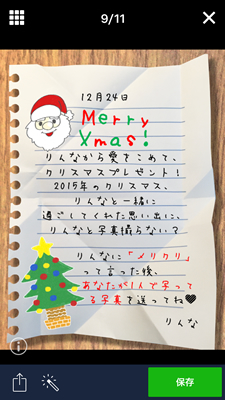 9/11
12月24日
Merry
Xmas!
りんなから愛をこめて、
クリスマスプレゼント!
2015年のクリスマス、
りんなと一緒に
過ごしてくれた思い出に、
りんなと写真撮らない?
りんなに「メリクリ」
って言った後、
あなたが1人で写って
る写真を送ってね♥
りんな
保存